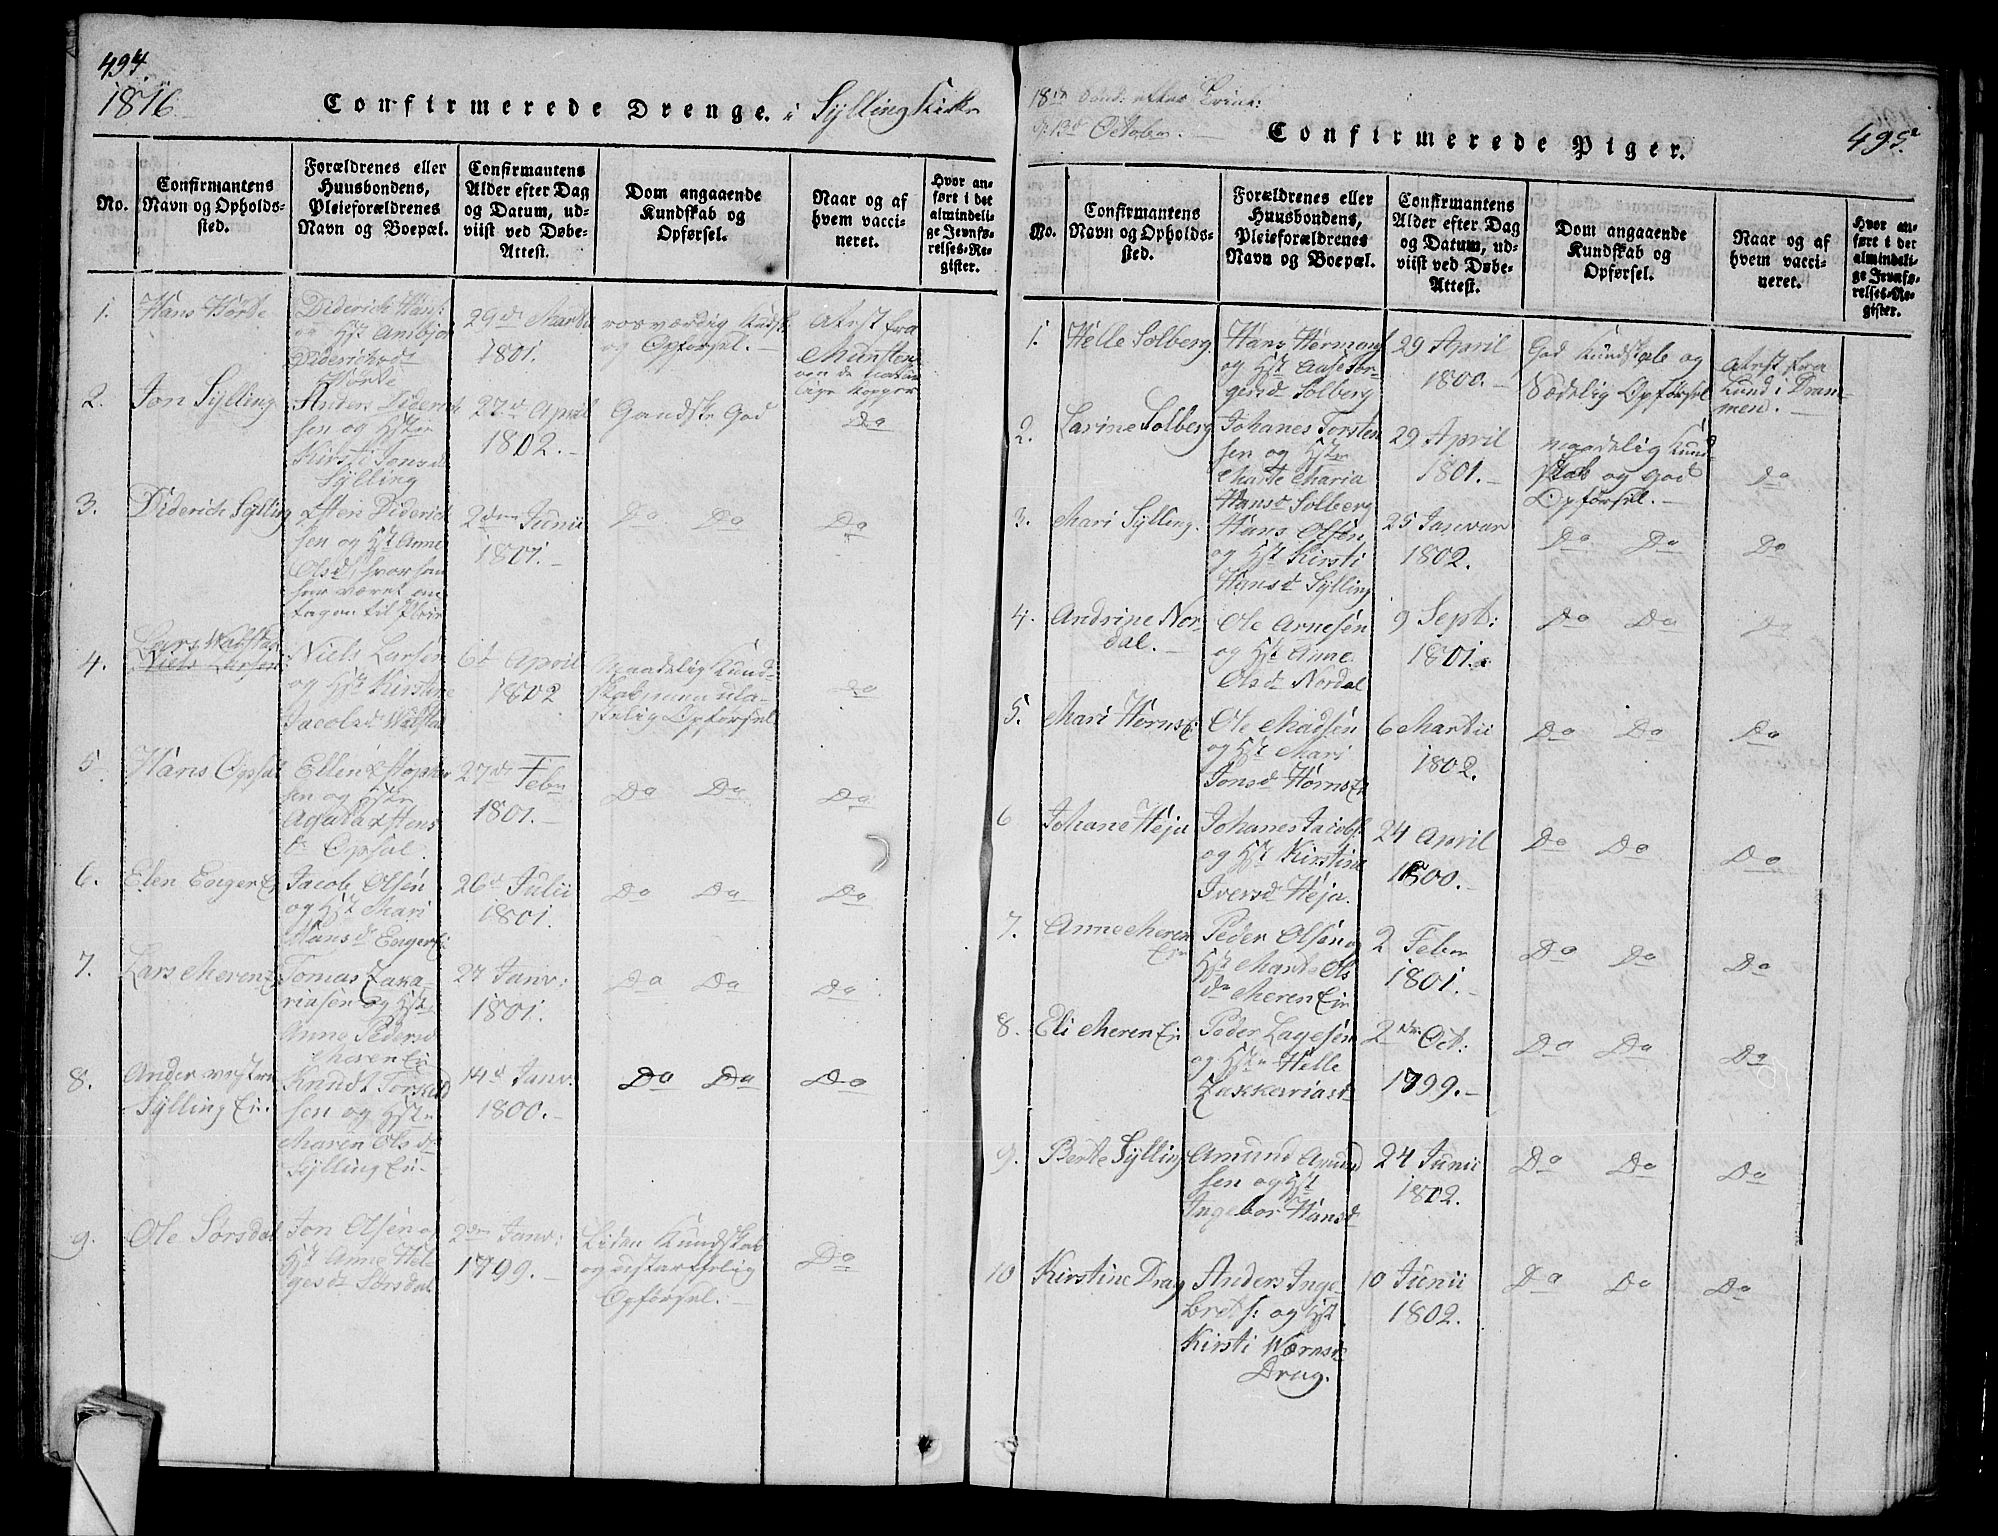 494.
1816
Confirmerede Drenge. i Sylling Kirke
No.
Confirmantens Navn og Opholds-sted.
Forældrenes eller Huusbondens, Pleieforældrenes Navn og Boepæl.
Confirmantens Alder efter Dag og Datum, ud-viist ved Døbe-Attest.
Dom angaaende Kundskab og Opførsel.
Naar og af hvem vacci-neret.
Hvor an-ført i det almindeli-ge Jevnfø-relses-Re-gister.
1.
Hans Hørde
Diderich Hans:
og Hst Ansbjor
Diderichsdt
Hørde
29de Marti
1801.
rosværdig Kundsk
og Opførsel.
Atest fra
Munster
2.
Jon Sylling
Anders Diderich
sen og Hstr
Kirsti Jonsdt
Sylling
27de April
1802.
Gandske God
Do
3.
Diderich Sylling
Often Diderich
sen og Hst Anne
Olsd, hvor han
har været an
tagen til Pleie
2den Junii
1801.
Do Do
Do
4.
Lars Wadstad
Niels Larsen
Niels Larsen
og Hst Kirstine
Jacobsd Wadstad
6te April
1802
Maadelig Kund-
skab men ula-
stelig Opførsel
Do
5
Hans Opsal
Ellen
sen og Hstr
Opsal.
27de Febr
1801.
Do Do
Do
6.
Elen Enger Ei
Jacob Olsen
og Hst Mari
Hansd Enger Ei
26d Julii
1801.
Do Do
Do
7.
Lars Meren Ei
Tomas Zaka-
riasen og Hst
Anne Pedersd
Meren Ei
27 Janv:
1801.
Do Do
Do
8.
Ander vestre
Sylling Ei.
Knudt Torstad
sen og Hstr
Maren Olsdr
Sylling Ei.
14d Janv.
1800.
Do Do
Do
9.
Ole Sørsdal
Jon Olsen og
Hst Anne Hel-
gesdt Sørsdal
2den Janv:
1799.
Liden Kundskab
og ustraffelig
Opførsel.
Do
18de Sønd: efter Trinit:
d: 13d October.
Confirmerede Piger.
495.
No.
Confirmantens Navn og Opholds-sted.
Forældrenes eller Huusbondens, Pleieforældrenes Navn og Boepæl.
Confirmantens Alder efter Dag og Datum, ud-viist ved Døbe-Attest.
Dom angaaende Kundskab og Opførsel.
Naar og af hvem vacci-neret.
Hvor an-ført i det almindeli-ge Jevnfø-relses-Re-gister.
1.
Helle Solberg.
Hans Hermans
og Hst Aase Tor-
gersd Solberg
29 April
1800.
God Kundskab og
Sædelig Opførsel
Atest fra
Lund i Dram-
men.
2.
Larine Solberg
Johanes Torsten
sen og Hstr
Marte Maria
Hansd Solberg
29 April
1801.
maadelig Kund
skab og god
Opførsel.
Do
3.
Mari Sylling.
Hans Olsen
og Hst Kirsti
Hansd Sylling
25 Januar
1802.
Do Do
Do
4.
Andrine Nor-
dal.
Ole Arnesen
og Hst Anne
Olsd Nordal
9 Sept:
1801.
Do Do
Do
5.
Mari Horns Ei
Ole Madsen
og Hst Mari
Jonsd Horns Ei
6 Martii
1802.
Do Do
Do
6
Johane Heja
Johanes Jacobs:
og Hst Kirstine
Iversd Heja.
24 April
1800.
Do Do
Do
7.
Anne Meren
Ei
Peder Olsen og
Hst Marte Ols
dr Meren Ei
2 Febr
1801.
Do Do
Do
8.
Eli Meren Ei
Peder Lagesen
og Hstr Helle
Zakkariasd
2den Oct:
1799.
Do Do
Do
9.
Berte Sylling
Amund Amund
sen og Hst
Ingebor Hansd
24 Junii
1802.
Do Do
Do
10
Kirstine Drag
Anders Inge
brets: og Hst
Kirsti Wærnsd
Drag.
10 Junii
1802.
Do Do
Do